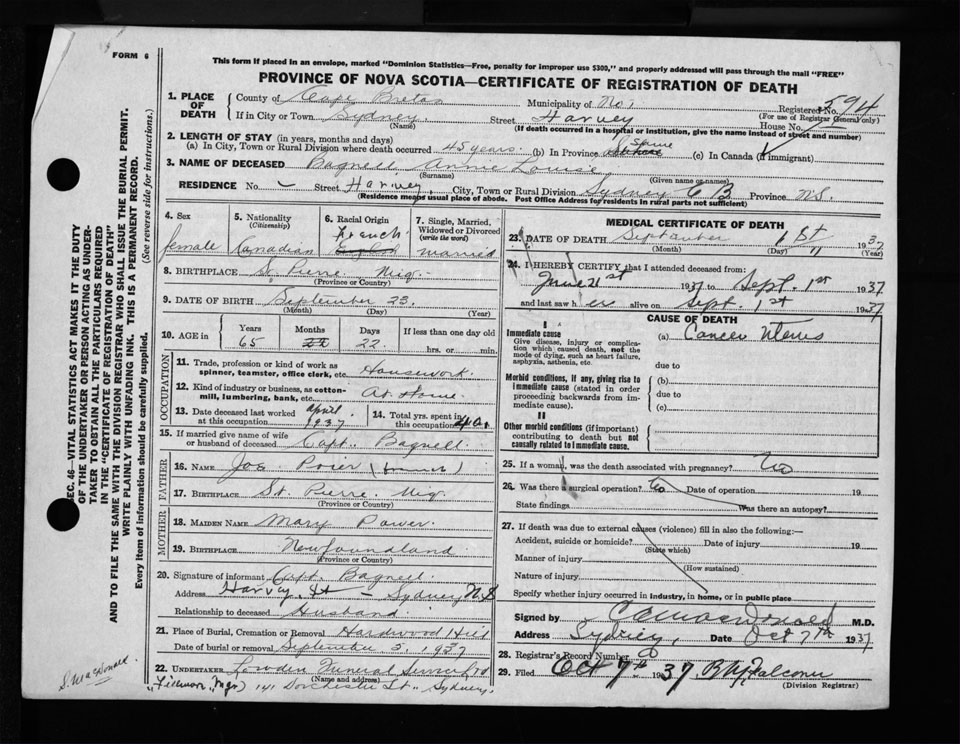 FORM 6
This form if placed in an envelope, marked "Dominion Statistics—Free, penalty for improper use $300," and properly addressed will pass through the mail "FREE"
PROVINCE OF NOVA SCOTIA—CERTIFICATE OF REGISTRATION OF DEATH
1. PLACE OF DEATH County of Cape Breton Municipality of No. 1 Registered No. 594
(For use of Registrar General only)
If in City or Town Sydney Street Harvey House No.
(Name) (If death occurred in a hospital or institution, give the name instead of street and number)
2. LENGTH OF STAY (in years, months and days)
(a) In City, Town or Rural Division where death occurred 45 years. (b) In Province Same (c) In Canada (if immigrant)
3. NAME OF DECEASED Bagnell, Annie Louise
(Surname) (Given name or names)
RESIDENCE No. – Street Harvey, City, Town or Rural Division Sydney C B Province N.S.
(Residence means usual place of abode. Post Office Address for residents in rural parts not sufficient)
4. Sex female
5. Nationality (Citizenship) Canadian
6. Racial Origin French
7. Single, Married, Widowed or Divorced (write the word) married
8. BIRTHPLACE St. Pierre Miq.
(Province or Country)
9. DATE OF BIRTH September 23.
(Month) (Day) (Year)
10. AGE in Years 65 Months Days 22 If less than one day old
hrs. or min.
OCCUPATION
11. Trade, profession or kind of work as spinner, teamster, office clerk, etc. Housework.
12. Kind of industry or business, as cotton-mill, lumbering, bank, etc. At Home.
13. Date deceased last worked at this occupation April 1937
14. Total yrs. spent in this occupation 40.
15. If married give name of wife or husband of deceased Capt. Bagnell.
FATHER
16. NAME Joe Poier
17. BIRTHPLACE St. Pierre. Miq.
(Province or Country)
MOTHER
18. MAIDEN NAME Mary Power.
19. BIRTHPLACE Newfoundland
(Province or Country)
20. Signature of informant Capt. Bagnell.
Address Harvey St – Sydney N S
Relationship to deceased Husband.
21. Place of Burial, Cremation or Removal Hardwood Hill
Date of burial or removal September 3, 1937
22. UNDERTAKER Lowden Funeral Service Ltd
(Name and address)
141 Dorchester St. Sydney.
MEDICAL CERTIFICATE OF DEATH
23. DATE OF DEATH September 1st 1937
(Month) (Day) (Year)
24. I HEREBY CERTIFY that I attended deceased from:
June 21st 1937 to Sept. 1st 1937
and last saw her alive on Sept. 1st 1937
CAUSE OF DEATH
I
Immediate cause
Give disease, injury or complication which caused death, not the mode of dying, such as heart failure, asphyxia, asthenia, etc.
(a) Cancer Uterus
due to
Morbid conditions, if any, giving rise to immediate cause (stated in order proceeding backwards from immediate cause).
(b)
due to
(c)
II
Other morbid conditions (if important) contributing to death but not causally related to immediate cause.
25. If a woman, was the death associated with pregnancy? No
26. Was there a surgical operation? No Date of operation 19
State findings Was there an autopsy?
27. If death was due to external causes (violence) fill in also the following:—
Accident, suicide or homicide? Date of injury 19
(State which)
Manner of injury
(How sustained)
Nature of injury
Specify whether injury occurred in industry, in home, or in public place
Signed by M.D.
Address Sydney, Date Oct 7th 1937
28. Registrar's Record Number
29. Filed Oct 7th 1937
(Division Registrar)
SEC. 46—VITAL STATISTICS ACT MAKES IT THE DUTY
OF THE UNDERTAKER OR PERSON ACTING AS UNDER-
TAKER TO OBTAIN ALL THE PARTICULARS REQUIRED
IN THE "CERTIFICATE OF REGISTRATION OF DEATH"
AND TO FILE THE SAME WITH THE DIVISION REGISTRAR WHO SHALL ISSUE THE BURIAL PERMIT.
WRITE PLAINLY WITH UNFADING INK. THIS IS A PERMANENT RECORD.
Every item of information should be carefully supplied. (See reverse side for instructions.)
S. MacDonald.